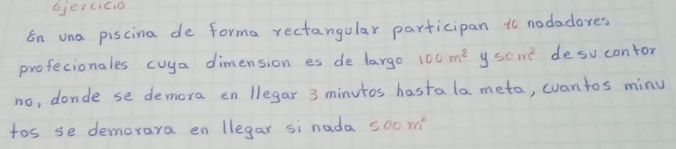 Ejercicio
En una piscina de forma rectangular participan 10 nadadores
profecionales cuya dimension es de largo 100 m² y 50 m² de su contor
no, donde se demora en llegar 3 minutos hasta la meta, cuantos minu
tos se demorara en llegar si nada 500 m²